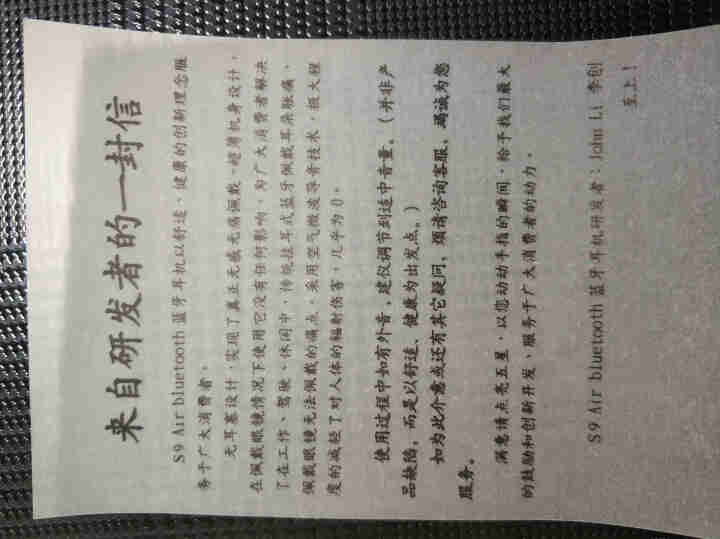 来自研发者的一封信
S9 Air bluetooth 蓝牙耳机以舒适、健康的创新理念服
务于广大消费者。
无耳塞设计，实现了真正无感无痛佩戴。超薄机身设计，
在佩戴眼镜情况下使用它没有任何影响，为广大消费者解决
了在工作、驾驶、休闲中，传统挂耳式蓝牙佩戴耳朵胀痛，
佩戴眼镜无法佩戴的痛点。采用空气微波导音技术，极大程
度的减轻了对人体的辐射伤害，几乎为0。
使用过程中如有外音，建仪调节到适中音量。（并非产
品缺陷，而是以舒适、健康为出发点。）
如为此介意或还有其它疑问，烦请咨询客服，竭诚为您
服务。
满意请点亮五星，以您动动手指的瞬间，给予我们最大
的鼓励和创新开发，服务于广大消费者的动力。
S9 Air bluetooth 蓝牙耳机研发者：John Li 李创
至上！